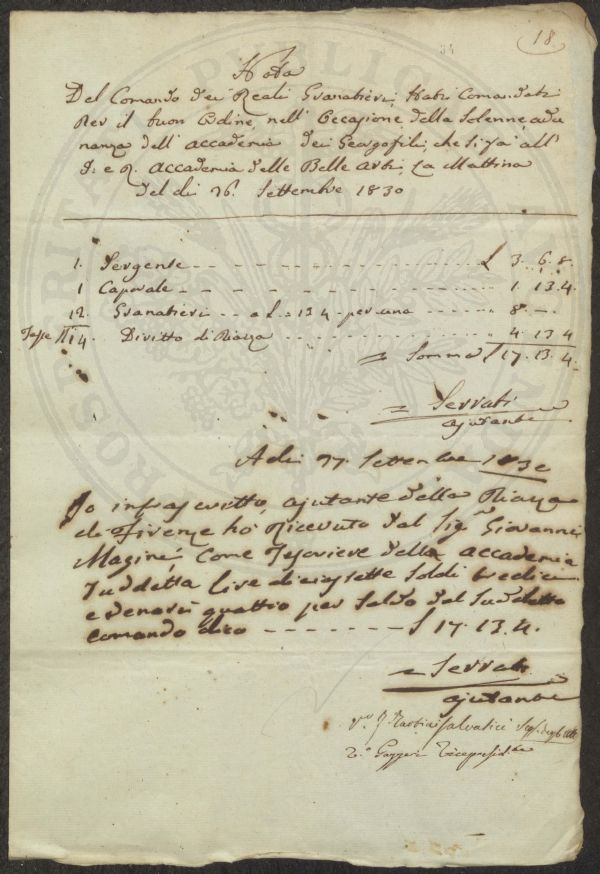 18.
34
Nota
Del Comando dei Reali Granatieri, stati Comandati
Per il buon Ordine, nell'Occasione della Solenne adu
nanza dell'accademia dei Georgofili, che si fa all'
I: e R. accademia delle Belle arti, La Mattina
del dì 26. Settembre 1830
1. Sergente £ 3. 6. 8
1 Caporale 1. 13. 4.
12. Granatieri a £ = 13 4 per uno 8 —
Teste N 14 Diritto di Piazza 4. 13 4
= Somma £ 17. 13. 4.
= Serrati
ajutante
A di 27. Settembre 1830
Io infrascritto, ajutante della Piazza
di Firenze ho Ricevuto dal Sig.r Giovanni
Magini Come Tesoriere della accademia
Suddetta Lire diciassette Soldi tredici
e denari quattro per Saldo del Suddetto
comando dico £ 17. 13. 4.
= Serrati
ajutante
Vicepresid.te